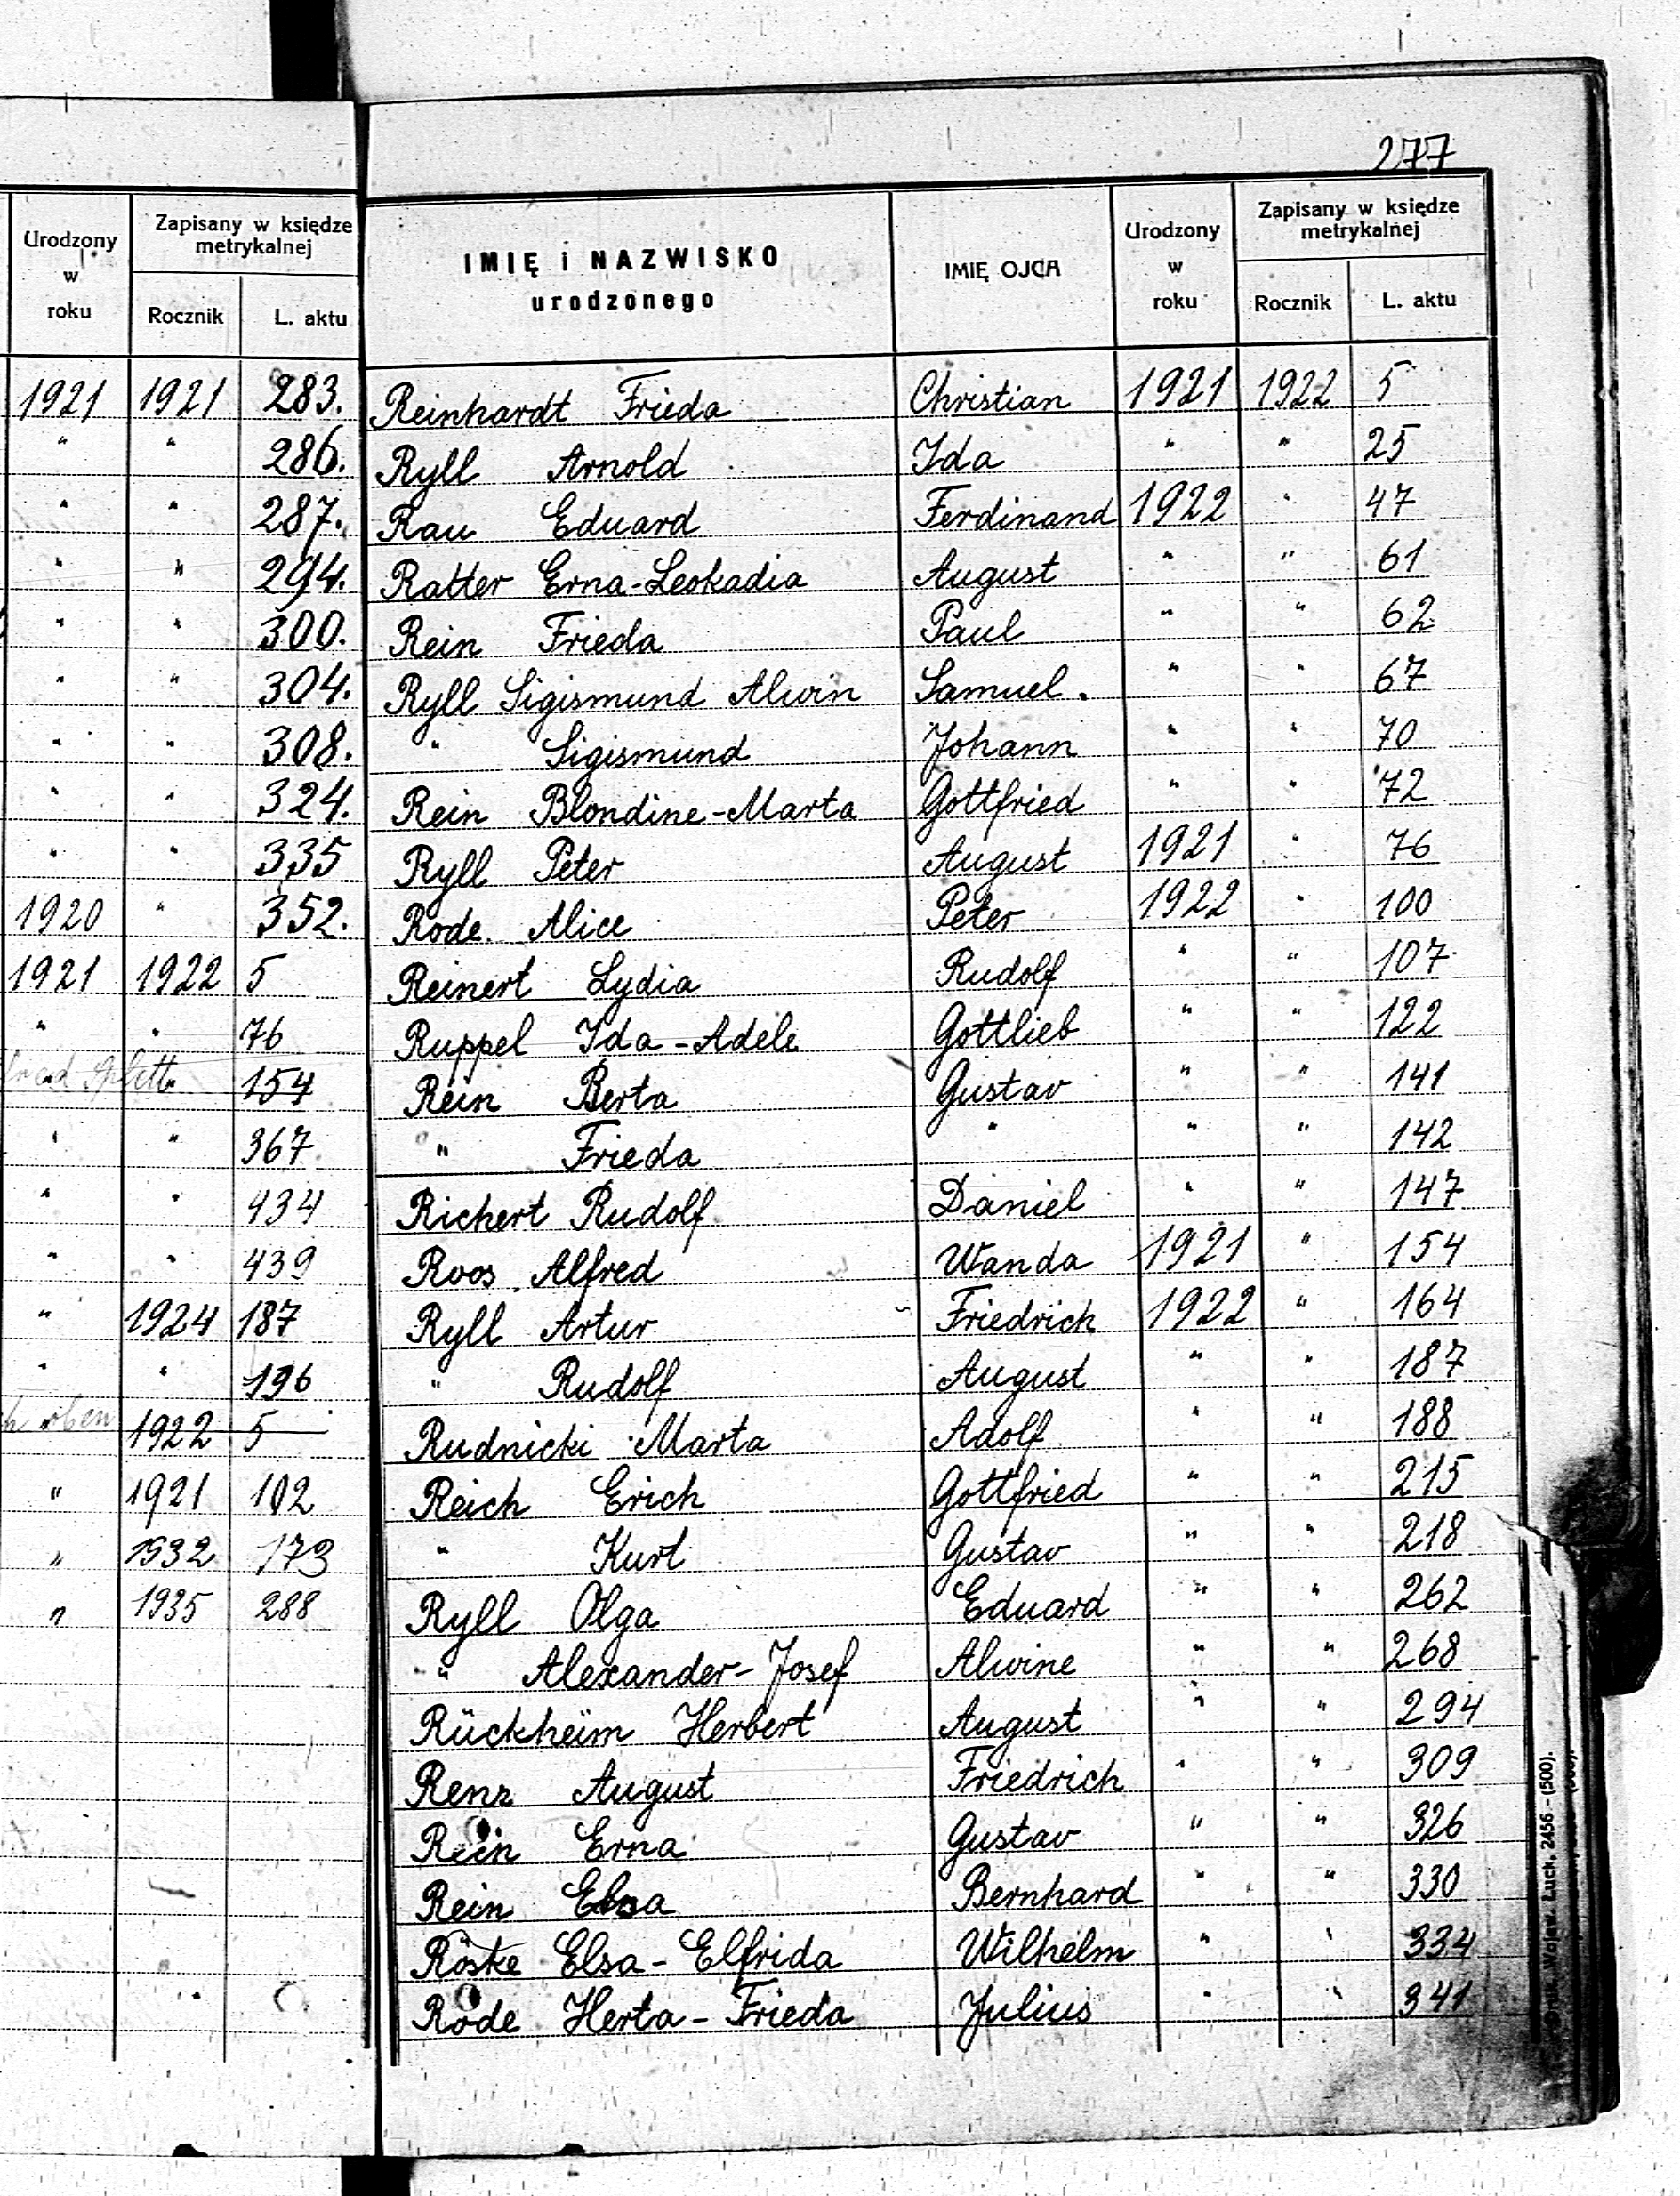 277
Urodzony w roku
Zapisany w księdze metrykalnej
Rocznik
L. aktu
IMIĘ i NAZWISKO urodzonego
IMIĘ OJCA
Urodzony w roku
Zapisany w księdze metrykalnej
Rocznik
L. aktu
1921 1921 283. Reinhardt Frieda Christian 1921 1922 5
" " 286. Ryll Arnold Ida " " 25
" " 287. Rau Eduard Ferdinand 1922 " 47
" " 294. Ratter Erna-Leokadia August " " 61
" " 300. Rein Frieda Paul " " 62
" " 304. Ryll Sigismund Alwin Samuel. " " 67
" " 308. " Sigismund Johann " " 70
" " 324. Rein Blondine-Marta Gottfried " " 72
" " 335 Ryll Peter August 1921 " 76
1920 " 352. Rode Alice Peter 1922 " 100
1921 1922 5 Reinert Lydia Rudolf " " 107
" " 76 Ruppel Ida-Adele Gottlieb " " 122
154 Rein Berta Gustav " " 141
" " 367 " Frieda " " " 142
" " 434 Richert Rudolf Daniel " " 147
" " 439 Roos Alfred Wanda 1921 " 154
" 1924 187 Ryll Artur Friedrich 1922 " 164
" " 196 " Rudolf August " " 187
oben 1922 5 Rudnicki Marta Adolf " " 188
" 1921 102 Reich Erich Gottfried " " 215
" 1932 173 " Kurt Gustav " " 218
" 1935 288 Ryll Olga Eduard " " 262
" Alexander-Josef Alwine " " 268
Rückheim Herbert August " " 294
Renz August Friedrich " " 309
Rein Erna Gustav " " 326
Rein Elsa Bernhard " " 330
Röske Elsa-Elfrida Wilhelm " " 334
Rode Herta-Frieda Julius " " 341
Wojew. Łuck, 2456 - (500).